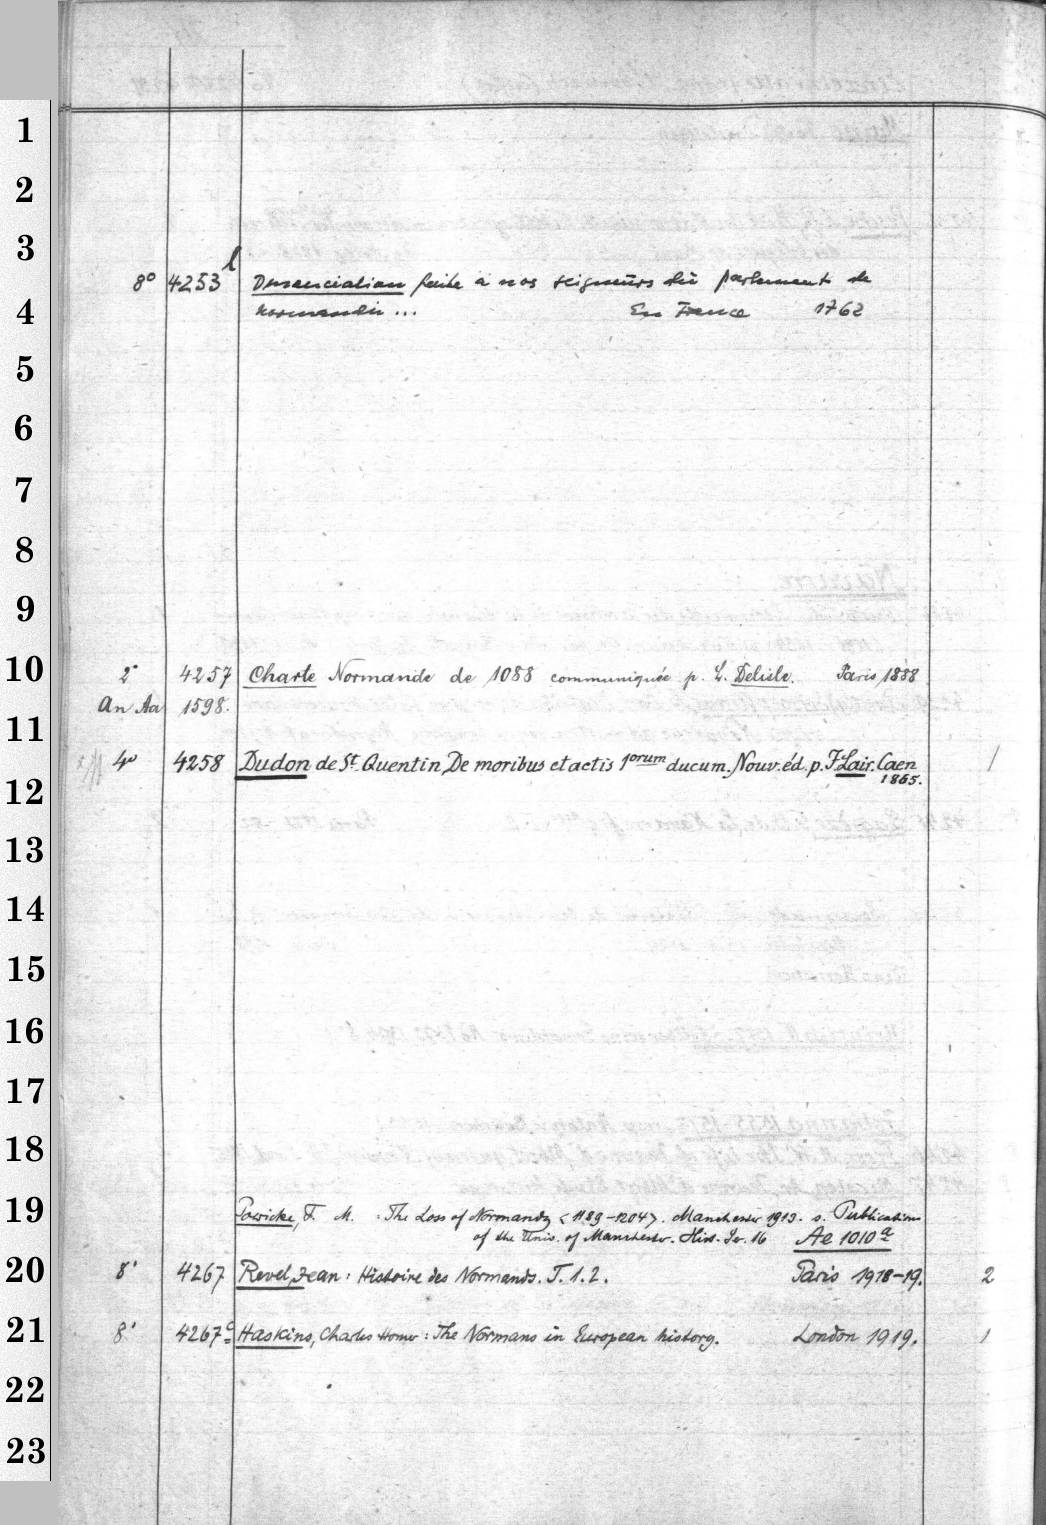 1
2
3
8° 4253 l Denunciation faite à nos seigneurs du parlement de
4 Normandie ... En France 1762
5
6
7
8
9
10 2° 4257 Charte Normande de 1088 communiquée p. L. Delisle. Paris 1888
An Aa 1598.
11
4° 4258 Dudon de St. Quentin, De moribus et actis 1orum ducum. Nouv. éd. p. J. Lair. Caen 1
12 1865.
13
14
15
16
17
18
19 Powicke, F. M. : The Loss of Normandy <1189-1204>. Manchester 1913. s. Publications
of the Univ. of Manchester. Hist. Ser. 16 Ae 1010a
20 8° 4267 Revel, Jean: Histoire des Normands. T. 1. 2. Paris 1918-19. 2
21 8° 4267c Haskins, Charles Homer: The Normans in European history. London 1919. 1
22
23